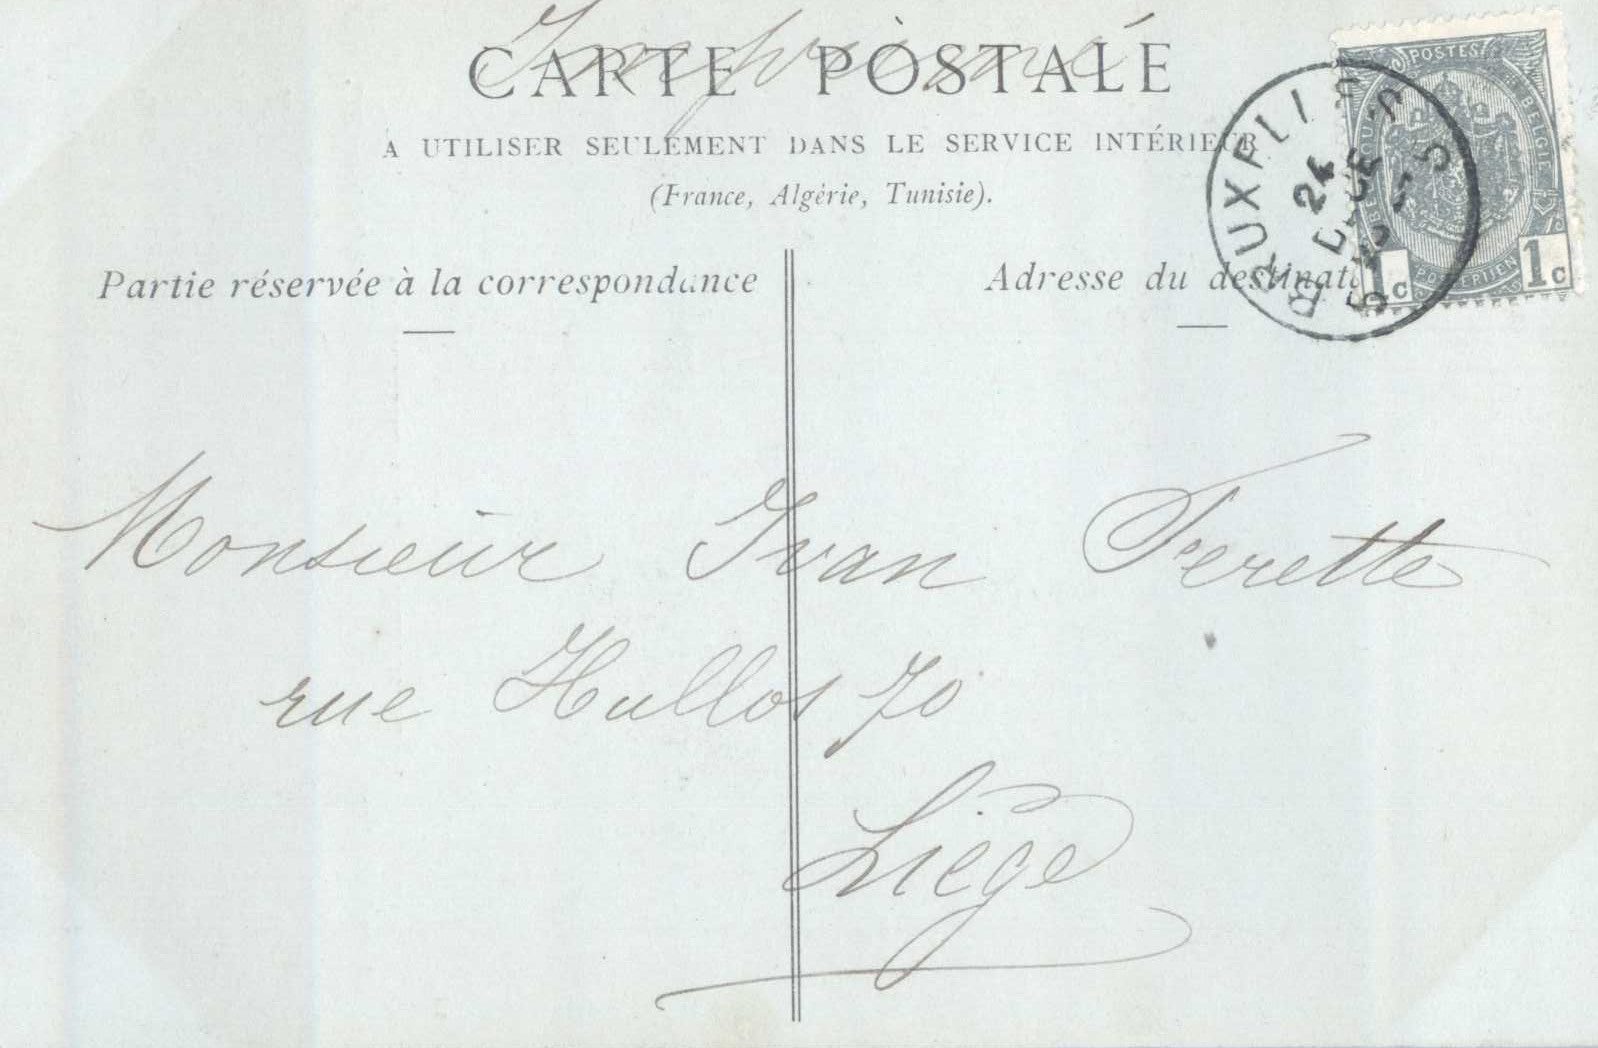 Imprimé
CARTE POSTALE
A UTILISER SEULEMENT DANS LE SERVICE INTÉRIEUR
(France, Algérie, Tunisie).
Partie réservée à la correspondance
Adresse du destinat
POSTES
BELGIE
POSTERIJEN
1c 1c
24
Monsieur Ivan Ferette
rue Hullos 70
Liège